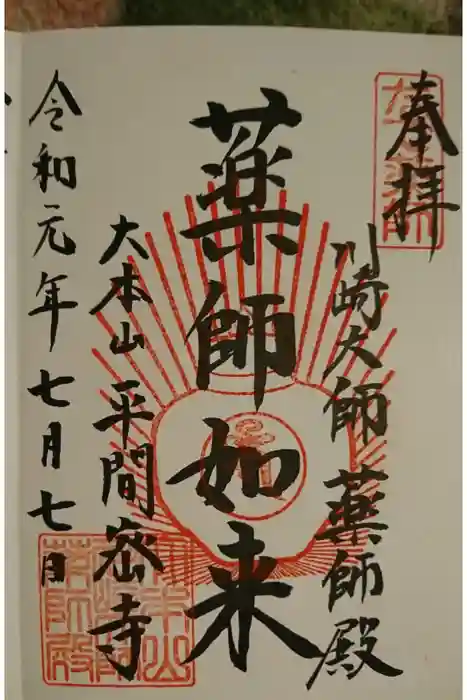 奉拝
川崎大師 薬師殿
薬師如来
大本山 平間寺
令和元年七月七日